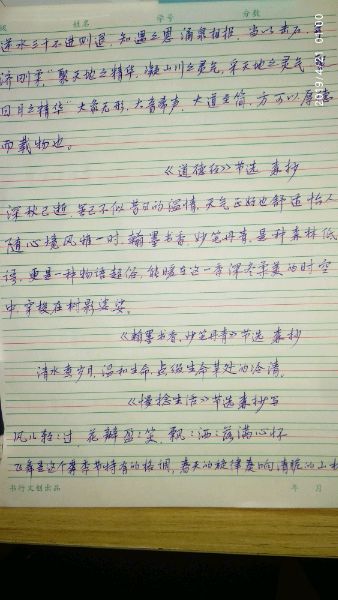 级 姓名 学号 分数
逆水三千不进则退，知遇之恩涌泉相报，当以柔石
济刚柔，"聚天地之精华，凝山川之灵气，采天地之灵气
日月之精华，大象无形，大音希声，大道至简，方可以厚德
而载物也。
《道德经》节选 森抄
深秋已逝，冬已不似昔日的温情，天气正好也舒适怡人
随心境风雅一时，翰墨书香，妙笔丹青，是种森林低
语，更是一种物语超俗，能暖在这一季深冬景美的时空
中，穿梭在树影婆娑。
《翰墨书香，妙笔丹青》节选 森抄
清水煮岁月，温和生命，点缀生命草处的冷清。
《慢捻生活》节选森抄写
风儿轻轻过，花瓣盈盈笑，飘飘洒洒落满心怀
飞舞着这个春季节特有的格调，春天的旋律奏响清脆的
书行文创出品 年 月
2019/4/21 0:00